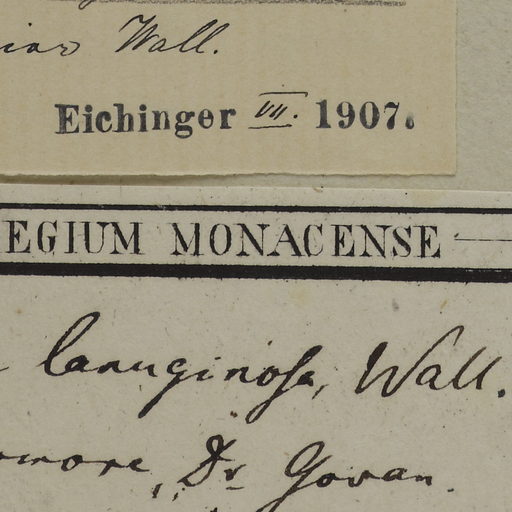 Wall.
Eichinger VII. 1907.
EGIUM MONACENSE
lanuginosa, Wall.
more, Dr Govan.